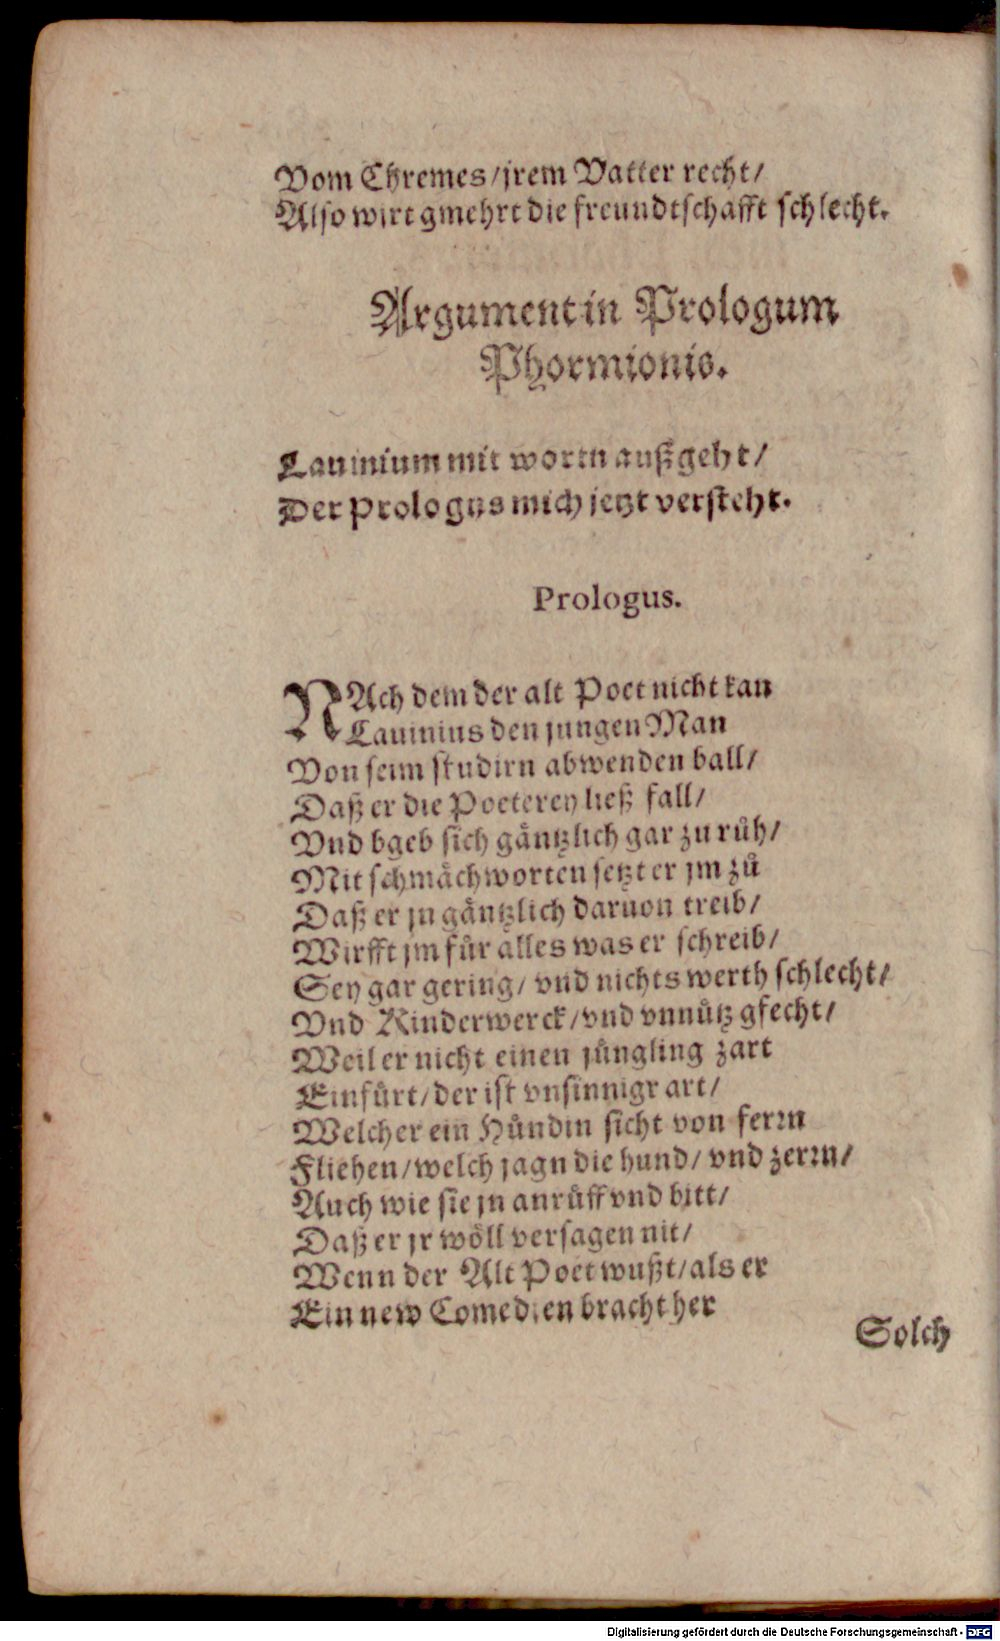 Vom Chremes/ jrem Vatter recht/
Also wirt gmehrt die freundtschafft schlecht.
Argument in Prologum
Phormionis.
Lauinium mit wortn außgeht/
Der Prologus mich jetzt versteht.
Prologus.
NAch dem der alt Poet nicht kan
Lauinius den jungen Man
Von seim studirn abwenden ball/
Daß er die Poeterey ließ fall/
Vnd bgeb sich gäntzlich gar zu růh/
Mit schmächworten setzt er jm zů
Daß er jn gäntzlich daruon treib/
Wirfft jm für alles was er schreib/
Sey gar gering/ vnd nichts werth schlecht/
Vnd Kinderwerck/ vnd vnnütz gfecht/
Weil er nicht einen jüngling zart
Einfürt/ der ist vnsinnigr art/
Welcher ein Hündin sicht von ferrn
Fliehen/ welch jagn die hund/ vnd zerrn/
Auch wie sie jn anrüff vnd bitt/
Daß er jr wöll versagen nit/
Wenn der Alt Poet wußt/ als er
Ein new Comedien bracht her
Solch
Digitalisierung gefördert durch die Deutsche Forschungsgemeinschaft - DFG